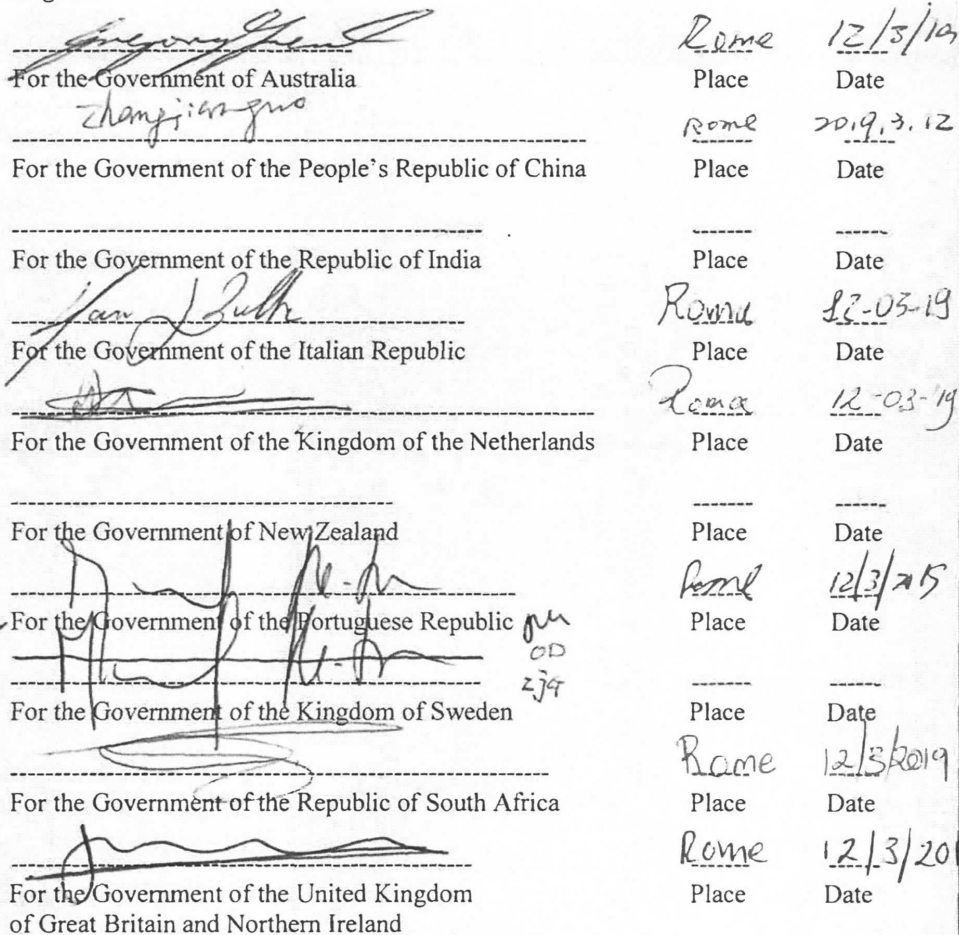 Rome 12/3/19
For the Government of Australia Place Date
zhangjianguo Rome 2019.3.12
For the Government of the People's Republic of China Place Date
For the Government of the Republic of India Place Date
Roma 12-03-19
For the Government of the Italian Republic Place Date
Roma 12-03-'19
For the Government of the Kingdom of the Netherlands Place Date
For the Government of New Zealand Place Date
Rome
For the Government of the Portuguese Republic Place Date
OD
For the Government of the Kingdom of Sweden Place Date
Rome 12/3/2019
For the Government of the Republic of South Africa Place Date
Rome 12/3/20
For the Government of the United Kingdom Place Date
of Great Britain and Northern Ireland